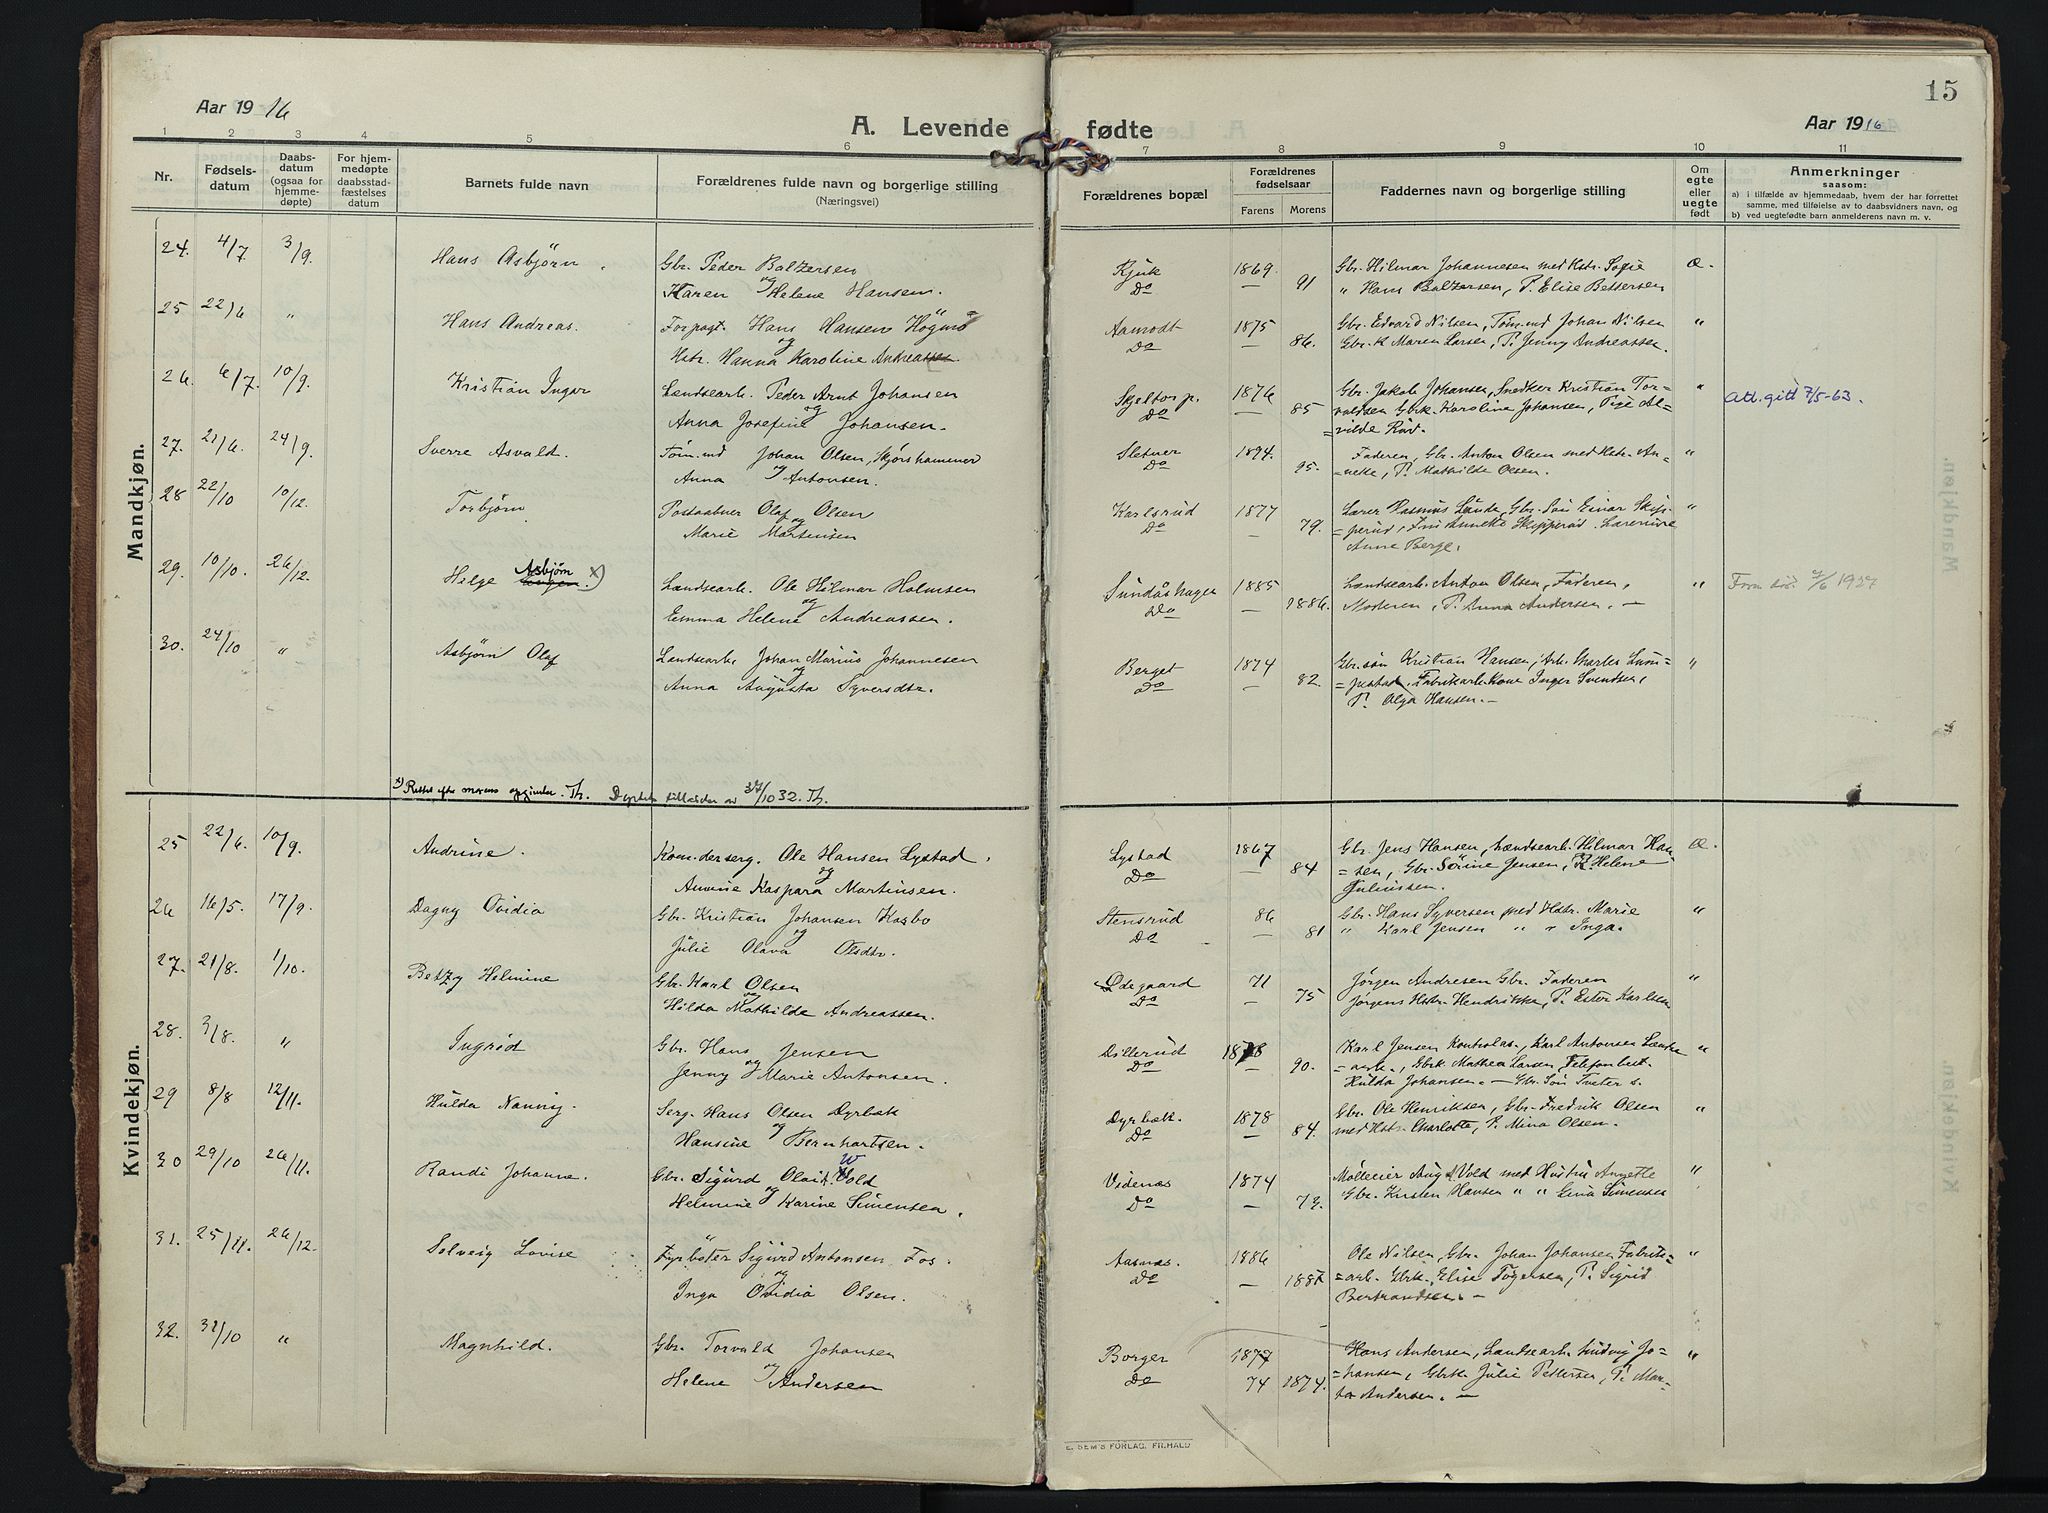 15
Aar 19 16
A. Levende fødte
Aar 19 16
1 2 3 4 5 6 7 8 9 10 11
Nr.
Fødsels-
datum
Daabs-
datum
(ogsaa for
hjemme-
døpte)
For hjem-
medøpte
daabsstad-
fæstelses
datum
Barnets fulde navn
Forældrenes fulde navn og borgerlige stilling
(Næringsvei)
Forældrenes bopæl
Forældrenes
fødselsaar
Farens Morens
Faddernes navn og borgerlige stilling
Om
egte
eller
uegte
født
Anmerkninger
saasom:
a) i tilfælde av hjemmedaab, hvem der har forrettet
samme, med tilføielse av to daabsvidners navn, og
b) ved uegtefødte barn anmelderens navn m. v.
Mandkjøn.
24. 4/7 3/9. Hans Asbjørn. Gbr. Peder Baltzersen Kjuk 1869. Gbr. Hilmar Johannesen med Hstr. Sofie Æ.
og Karen Helene Hansen. Do — 91 " Hans Baltzersen, P. Elise Bettersen
25 22/6 " Hans Andreas. Forpagt. Hans Hansen Högmo Aamodt 1875 Gbr. Edvard Nilsen, Tøm.md Johan Nilsen "
og Hstr. Hanna Karoline Andreassen. Do — 86. Gbr. k Maren Larsen, P. Jenny Andreassen.
26. 6/7. 10/9. Kristian Ingar Landsearb. Peder Arnt Johansen Skjeltorp. 1876 Gbr. Jakob Johansen, Snedker Kristian Tor= " Att. gitt 7/5-63.
og Anna Josefine Johansen. Do — 85 valdsen Gbrk. Karoline Johansen, Pige Al=
=vilde Rød.
27. 21/6. 24/9. Sverre Asvald. Tøm.md Johan Olsen, Skjørshammer Sletner 1894. Faderen, Gbr. Anton Olsen med Hstr. An= "
og Anna Antonsen. Do — 95. =nette, P. Mathilde Olsen.
28 22/10 10/12. Torbjørn Postaabner Olaf Olsen Karlsrud 1877 Lærer Rasmus Lunde, Gbr. søn Einar Skip= "
og Marie Martinsen Do — 79. =perud, Frü Annette Skipperud. Lærerinne
Anna Berge.
29. 10/10. 26/12. Helge Asbjørn x) Landsearb. Ole Hilmar Holmsen Sundåshagen 1885 Landsearb. Anton Olsen, Faderen, " 7/6 1927
og Emma Helene Andreassen. Do — 1886. Moderen, P. Anna Andersen. —
30. 24/10 " Asbjørn Olaf Landsearb. Johan Marius Johannesen Berget 1874 Gbr. søn Kristian Hansen, Arb. Charles Lüm= "
og Anna Augusta Syversdtr. Do — 82. =pestad, Fabrikarb. Kone Inger Svendsen,
P. Olga Hansen.—
x) Rettet efter morens opgivelse. Th. 10 32. Th.
Kvindekjøn.
25 22/6. 10/9. Andrine. Kom.derserg. Ole Hansen Lystad. Lystad 1867 Gbr. Jens Hansen, Landsearb. Hilmar Han= Æ.
og Anne Kaspara Martinsen. Do — 84 =sen, Gbr. Sörine Jensen, P. Helene
Julinssen.
26 16/5. 17/9. Dagny Ovidia Gbr. Kristian Johansen Kasbo Stensrud 86 Gbr. Hans Syversen med Hstr. Marie "
og Julie Olava Olsdtr. Do — 81 " Karl Jensen " " Inga.
27. 21/8. 1/10. Betzy Helmine Gbr. Karl Olsen Ødegaard 71 Jørgen Andresen Gbr. Faderen "
og Hilda Mathilde Andreassen. Do — 75 Jørgens Hstr. Hendrikke, P. Ester Karlsen
28. 3/8. " Ingrid Gbr. Hans Jensen Dillerud 1878 Karl Jensen Kontrolas., Karl Antonsen Lands= "
og Jenny Marie Antonsen. Do — 90. =arb., Gbrk. Mathea Larsen, Telefonbest.
Hulda Johansen. — Gbr. Søn Tveter s.
29 8/8 12/11. Hulda Nanny. Serg. Hans Olsen Dyrbæk Dyrbæk. 1878 Gbr. Ole Henriksen, Gbr. Fredrik Olsen "
og Hansine Bernhartsen. Do — 84. med Hstr. Charlotte, P. Mina Olsen.
30 29/10 26/11. Randi Johanne. Gbr. Sigurd Olai Wold Videnæs 1874 Mölleeier Aug. Wold med Hustru Annette "
og Helmine Karine Simensen. Do — 72. Gbr. Kristen Hansen " " Gina Simensen
31. 25/11. 26/12. Solveig Lovise Fyrbøter Sigurd Antonsen Fos. Aasnæs. 1886 Ole Nilsen, Gbr. Johan Johansen Fabrik= "
og Inga Ovidia Olsen. Do — 1887 =arb. Gbrk. Elise Tøgersen, P. Sigrid
Bertrandsen. —
32. 31/10 " Magnhild. Gbr. Torvald Johansen Borger 1877 Hans Andersen, Landsearb. Ludvig Jo= "
og Helene Andersen Do 74 1874. =hansen, Gbrk. Julie Pettersen, P. Mar=
ta Andersen. —
E. SEM'S FORLAG, FR.HALD